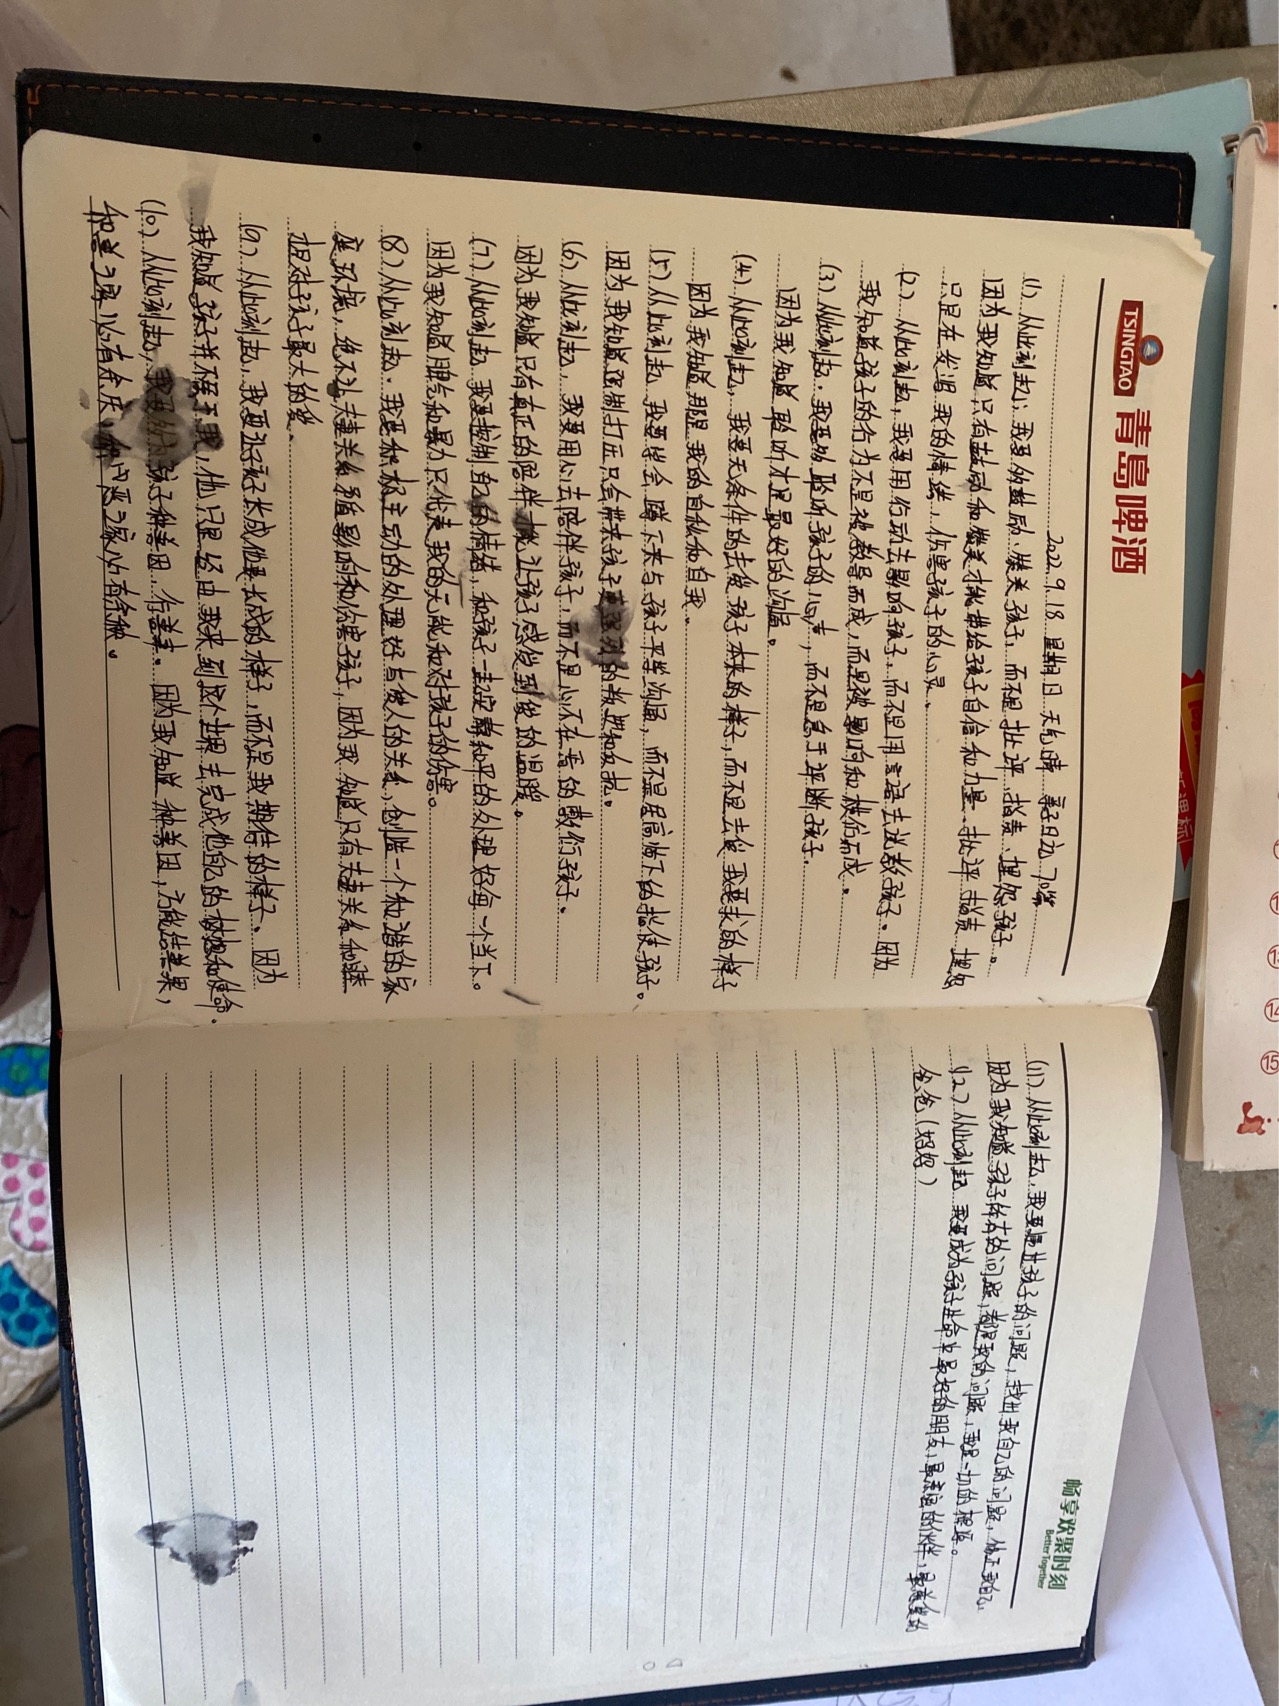 TSINGTAO 青岛啤酒
2022.9.18 星期日 天气晴 亲子日记
(1) 从此刻起；我要多鼓励、赞美孩子，而不是批评、指责、埋怨孩子。
因为我知道只有鼓励和赞美才能带给孩子自信和力量，批评、指责、埋怨
只是在发泄我的情绪，伤害孩子的心灵。
(2) 从此刻起，我要用行动去影响孩子，而不是用言语去说教孩子。因为
我知道孩子的行为不是被教导而成，而是被影响和模仿而成。
(3) 从此刻起，我要多聆听孩子的心声，而不是急于评断孩子。
因为我知道聆听才是最好的沟通。
(4) 从此刻起，我要无条件的去爱孩子本来的样子，而不是去爱我要求的样子
因为我知道那是我的自私和自我。
(5) 从此刻起，我要学会蹲下来与孩子平等沟通，而不是居高临下的指使孩子。
因为我知道强制打压只会带来孩子更强烈的叛逆和反抗。
(6) 从此刻起，我要用心去陪伴孩子，而不是心不在焉的敷衍孩子。
因为我知道只有真正的陪伴才能让孩子感觉到爱的温暖。
(7) 从此刻起，我要控制自己的情绪，和孩子一起安静和平的处理好每一个当下。
因为我知道脾气和暴力只代表我的无能和对孩子的伤害。
(8) 从此刻起，我要积极主动的处理好与爱人的关系，创造一个和谐的家
庭环境，绝不让夫妻关系矛盾影响和伤害孩子，因为我知道只有夫妻关系和睦
才是对孩子最大的爱。
(9) 从此刻起，我要让孩子长成他要长成的样子，而不是我期待的样子。因为
我知道孩子并不属于我，他只是经由我来到这个世界去完成他自己的梦想和使命。
(10) 从此刻起，我要多为孩子种善因，存善未。因为我知道种善因，方能结善果，
积善之家必有余庆，积恶之家必有余殃。
(11) 从此刻起，我要通过孩子的问题，找出我自己的问题，修正我自己，
因为我知道孩子所有的问题，都是我的问题，我是一切的根源。
(12) 从此刻起，我要成为孩子生命中最好的朋友，最亲密的伙伴，最慈爱的
爸爸（妈妈）
畅享欢聚时刻
Better Together
新课标
14
15